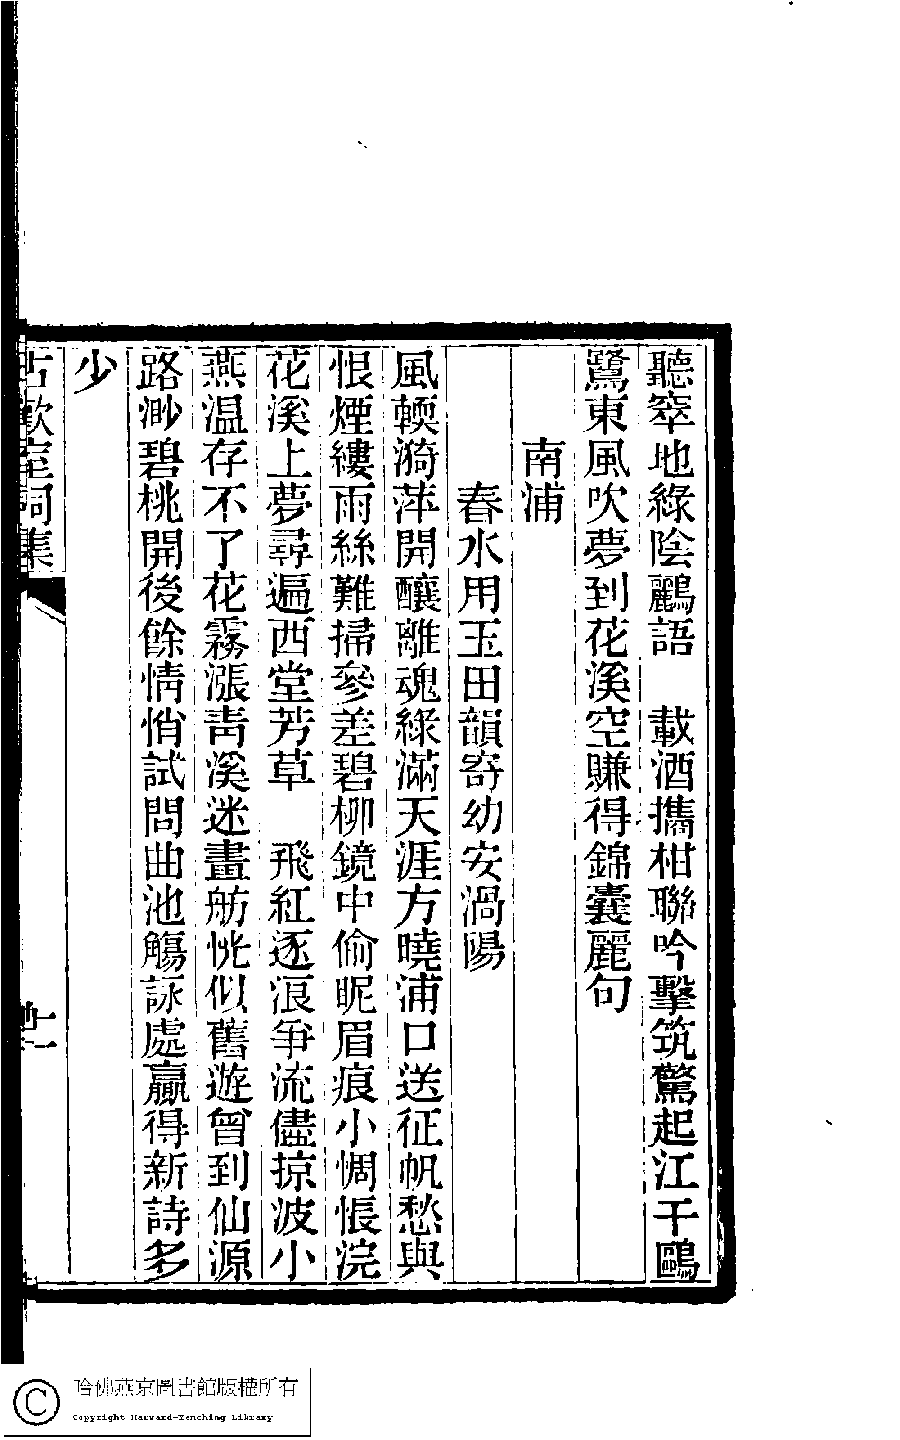 聽窣地綠陰鸝語　載酒攜柑聯吟擊筑驚起江干鷗
鷺東風吹夢到花溪空賺得錦囊麗句
南浦
春水用玉田韻寄幼安渦陽
風輭漪萍開釀離魂綠滿天涯方曉浦口送征帆愁與
恨煙縷雨絲難掃參差碧柳鏡中偷昵眉痕小惆悵浣
花溪上夢尋遍西堂芳草　飛紅逐浪爭流儘掠波小
燕温存不了花霧漲靑溪迷畫舫恍似舊遊曾到仙源
路渺碧桃開後餘情悄試問曲池觴詠處贏得新詩多
少
古歡室詞集
十一
哈佛燕京圖書館版權所有
Copyright Harvard-Yenching Library